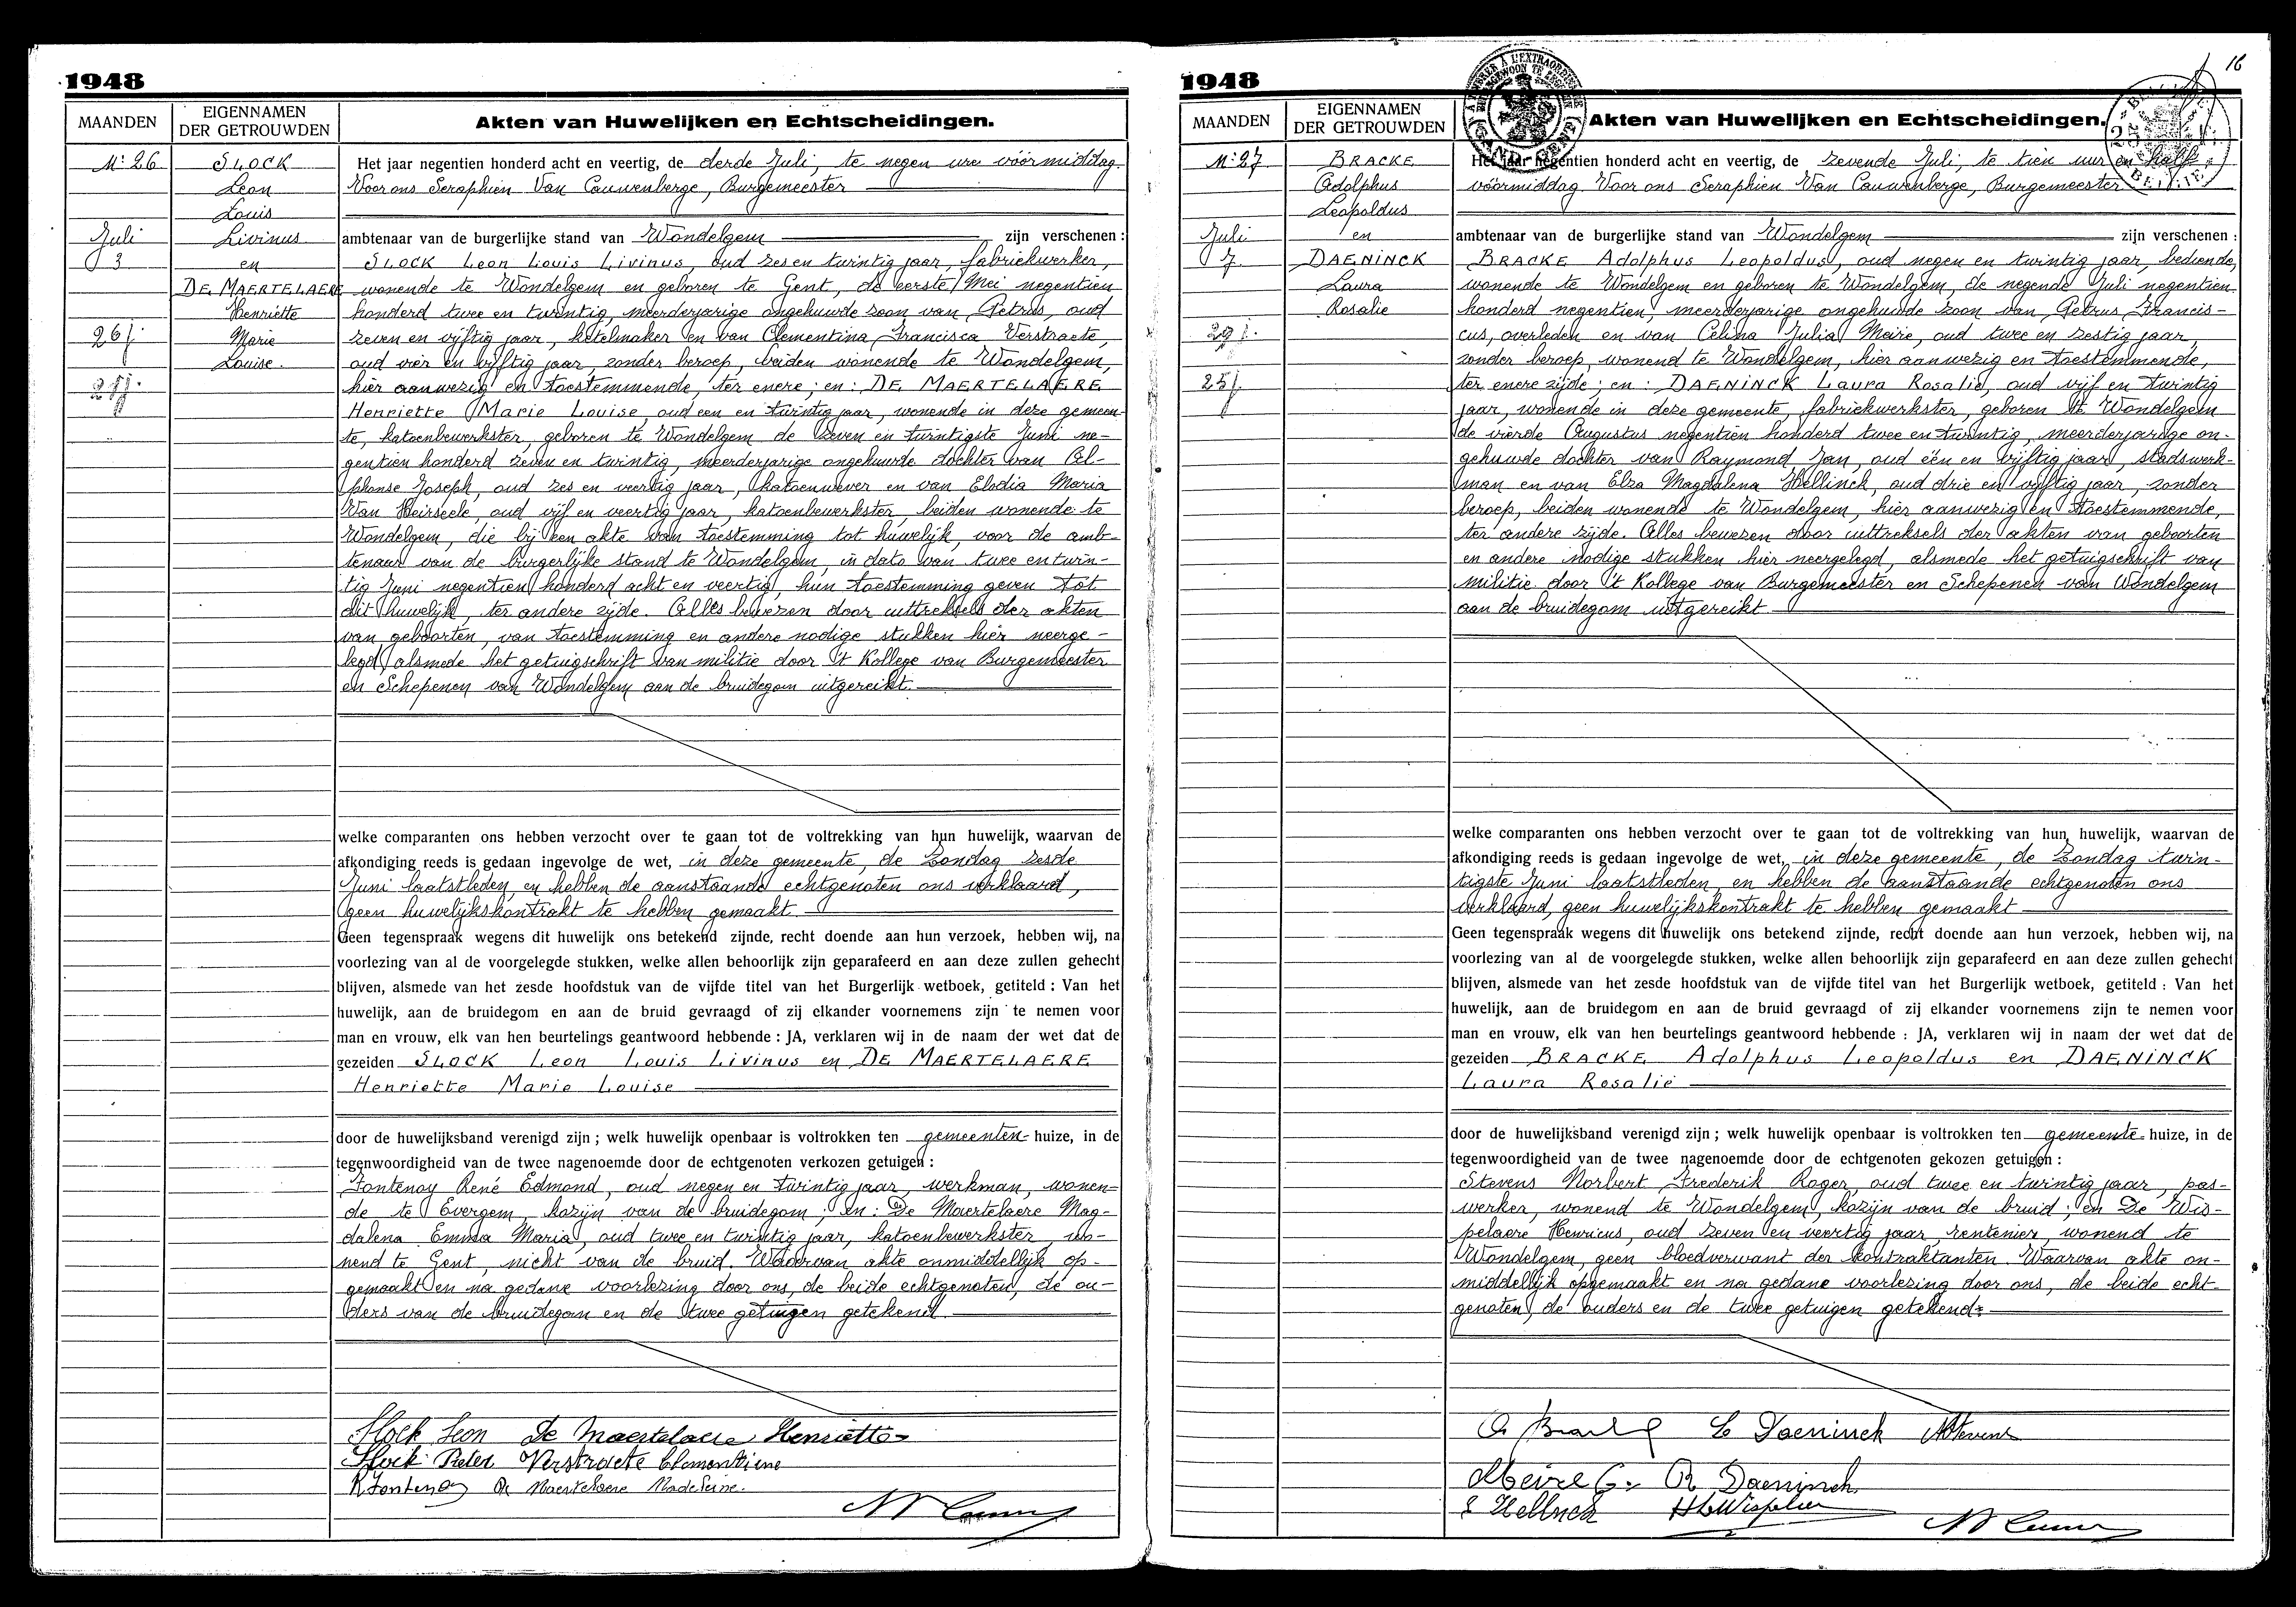 1948
MAANDEN
EIGENNAMEN
DER GETROUWDEN
Akten van Huwelijken en Echtscheidingen.
Nr 26
Juli
3
26 j.
SLOCK
Leon
Louis
Livinus
en
DE MAERTELAERE
Henriëtte
Marie
Louise.
Het jaar negentien honderd acht en veertig, de derde Juli, te negen ure vóórmiddag.
Voor ons Seraphien Van Cauwenberge, Burgemeester
ambtenaar van de burgerlijke stand van Wondelgem zijn verschenen :
SLOCK Leon Louis Livinus, oud zes en twintig jaar, fabriekwerker,
wonende te Wondelgem en geboren te Gent, de eerste Mei negentien
honderd twee en twintig, meerderjarige ongehuwde zoon van Petrus, oud
zeven en vijftig jaar, ketelmaker en van Clementina Francisca Verstraete,
oud vier en vijftig jaar, zonder beroep, beiden wonende te Wondelgem,
hier aanwezig en toestemmende, ter enere ; en : DE MAERTELAERE
Henriette Marie Louise, oud een en twintig jaar, wonende in deze gemeen-
te, katoenbewerkster, geboren te Wondelgem de zeven en twintigste Juni ne-
gentien honderd zeven en twintig, meerderjarige ongehuwde dochter van Al-
phonse Joseph, oud zes en veertig jaar, katoenwever en van Elodia Maria
Van Heirseele, oud vijf en veertig jaar, katoenbewerkster, beiden wonende te
Wondelgem, die bij een akte van toestemming tot huwelijk, voor de amb-
tenaar van de burgerlijke stand te Wondelgem, in dato van twee en twin-
tig Juni negentien honderd acht en veertig, hun toestemming geven tot
dit huwelijk, ter andere zijde. Alles bewezen door uittreksels der akten
van geboorten, van toestemming en andere nodige stukken hier neerge-
legd, alsmede het getuigschrift van militie door 't Kollege van Burgemeester
en Schepenen van Wondelgem aan de bruidegom uitgereikt.
welke comparanten ons hebben verzocht over te gaan tot de voltrekking van hun huwelijk, waarvan de
afkondiging reeds is gedaan ingevolge de wet, in deze gemeente, de Zondag zesde
Juni laatstleden, en hebben de aanstaande echtgenoten ons verklaard,
geen huwelijkskontrakt te hebben gemaakt.
Geen tegenspraak wegens dit huwelijk ons betekend zijnde, recht doende aan hun verzoek, hebben wij, na
voorlezing van al de voorgelegde stukken, welke allen behoorlijk zijn geparafeerd en aan deze zullen gehecht
blijven, alsmede van het zesde hoofdstuk van de vijfde titel van het Burgerlijk wetboek, getiteld : Van het
huwelijk, aan de bruidegom en aan de bruid gevraagd of zij elkander voornemens zijn te nemen voor
man en vrouw, elk van hen beurtelings geantwoord hebbende : JA, verklaren wij in de naam der wet dat de
gezeiden SLOCK Leon Louis Livinus en DE MAERTELAERE
Henriette Marie Louise
door de huwelijksband verenigd zijn ; welk huwelijk openbaar is voltrokken ten gemeenten huize, in de
tegenwoordigheid van de twee nagenoemde door de echtgenoten verkozen getuigen :
Fontenoy René Edmond, oud negen en twintig jaar, werkman, wonen-
de te Evergem, kozijn van de bruidegom ; en : De Maertelaere Mag-
dalena Emma Maria, oud twee en twintig jaar, katoenbewerkster, wo-
nend te Gent, nicht van de bruid. Waarvan akte onmiddellijk op-
gemaakt en na gedane voorlezing door ons, de beide echtgenoten, de ou-
ders van de bruidegom en de twee getuigen getekend.
Slock Leon De Maertelaere Henriette
Slock Pieter Verstraete Clementine
R Fontenoy De Maertelaere Madeleine.
1948
16
MAANDEN
EIGENNAMEN
DER GETROUWDEN
Akten van Huwelijken en Echtscheidingen.
Nr 27
Juli
7
29 j.
25 j.
BRACKE
Adolphus
Leopoldus
en
DAENINCK
Laura
Rosalie
Het jaar negentien honderd acht en veertig, de zevende Juli, te tien uur en half
vóórmiddag Voor ons Seraphien Van Cauwenberge, Burgemeester
ambtenaar van de burgerlijke stand van Wondelgem zijn verschenen :
BRACKE Adolphus Leopoldus, oud negen en twintig jaar, bediende,
wonende te Wondelgem en geboren te Wondelgem, de negende Juli negentien
honderd negentien, meerderjarige ongehuwde zoon van Petrus Francis-
cus, overleden en van Celina Julia Meire, oud twee en zestig jaar,
zonder beroep, wonend te Wondelgem, hier aanwezig en toestemmende,
ter enere zijde ; en : DAENINCK Laura Rosalie, oud vijf en twintig
jaar, wonende in deze gemeente, fabriekwerkster, geboren te Wondelgem
de vierde Augustus negentien honderd twee en twintig, meerderjarige on-
gehuwde dochter van Raymond Jan, oud één en vijftig jaar, stadswerk-
man en van Elza Magdalena Hellinck, oud drie en vijftig jaar, zonder
beroep, beiden wonende te Wondelgem, hier aanwezig en toestemmende,
ter andere zijde. Alles bewezen door uittreksels der akten van geboorten
en andere nodige stukken hier neergelegd, alsmede het getuigschrift van
militie door 't Kollege van Burgemeester en Schepenen van Wondelgem
aan de bruidegom uitgereikt
welke comparanten ons hebben verzocht over te gaan tot de voltrekking van hun huwelijk, waarvan de
afkondiging reeds is gedaan ingevolge de wet, in deze gemeente, de Zondag twin-
tigste Juni laatstleden, en hebben de aanstaande echtgenoten ons
verklaard, geen huwelijkskontrakt te hebben gemaakt
Geen tegenspraak wegens dit huwelijk ons betekend zijnde, recht doende aan hun verzoek, hebben wij, na
voorlezing van al de voorgelegde stukken, welke allen behoorlijk zijn geparafeerd en aan deze zullen gehecht
blijven, alsmede van het zesde hoofdstuk van de vijfde titel van het Burgerlijk wetboek, getiteld : Van het
huwelijk, aan de bruidegom en aan de bruid gevraagd of zij elkander voornemens zijn te nemen voor
man en vrouw, elk van hen beurtelings geantwoord hebbende : JA, verklaren wij in naam der wet dat de
gezeiden BRACKE Adolphus Leopoldus en DAENINCK
Laura Rosalie
door de huwelijksband verenigd zijn ; welk huwelijk openbaar is voltrokken ten gemeente huize, in de
tegenwoordigheid van de twee nagenoemde door de echtgenoten gekozen getuigen :
Stevens Norbert Frederik Roger, oud twee en twintig jaar, pas-
werker, wonend te Wondelgem, kozijn van de bruid ; en De Wis-
pelaere Henricus, oud zeven en veertig jaar, rentenier, wonend te
Wondelgem, geen bloedverwant der kontraktanten. Waarvan akte on-
middellijk opgemaakt en na gedane voorlezing door ons, de beide echt-
genoten, de ouders en de twee getuigen getekend.
L Daeninck N Stevens
Meire C. R. Daeninck
E Hellinck